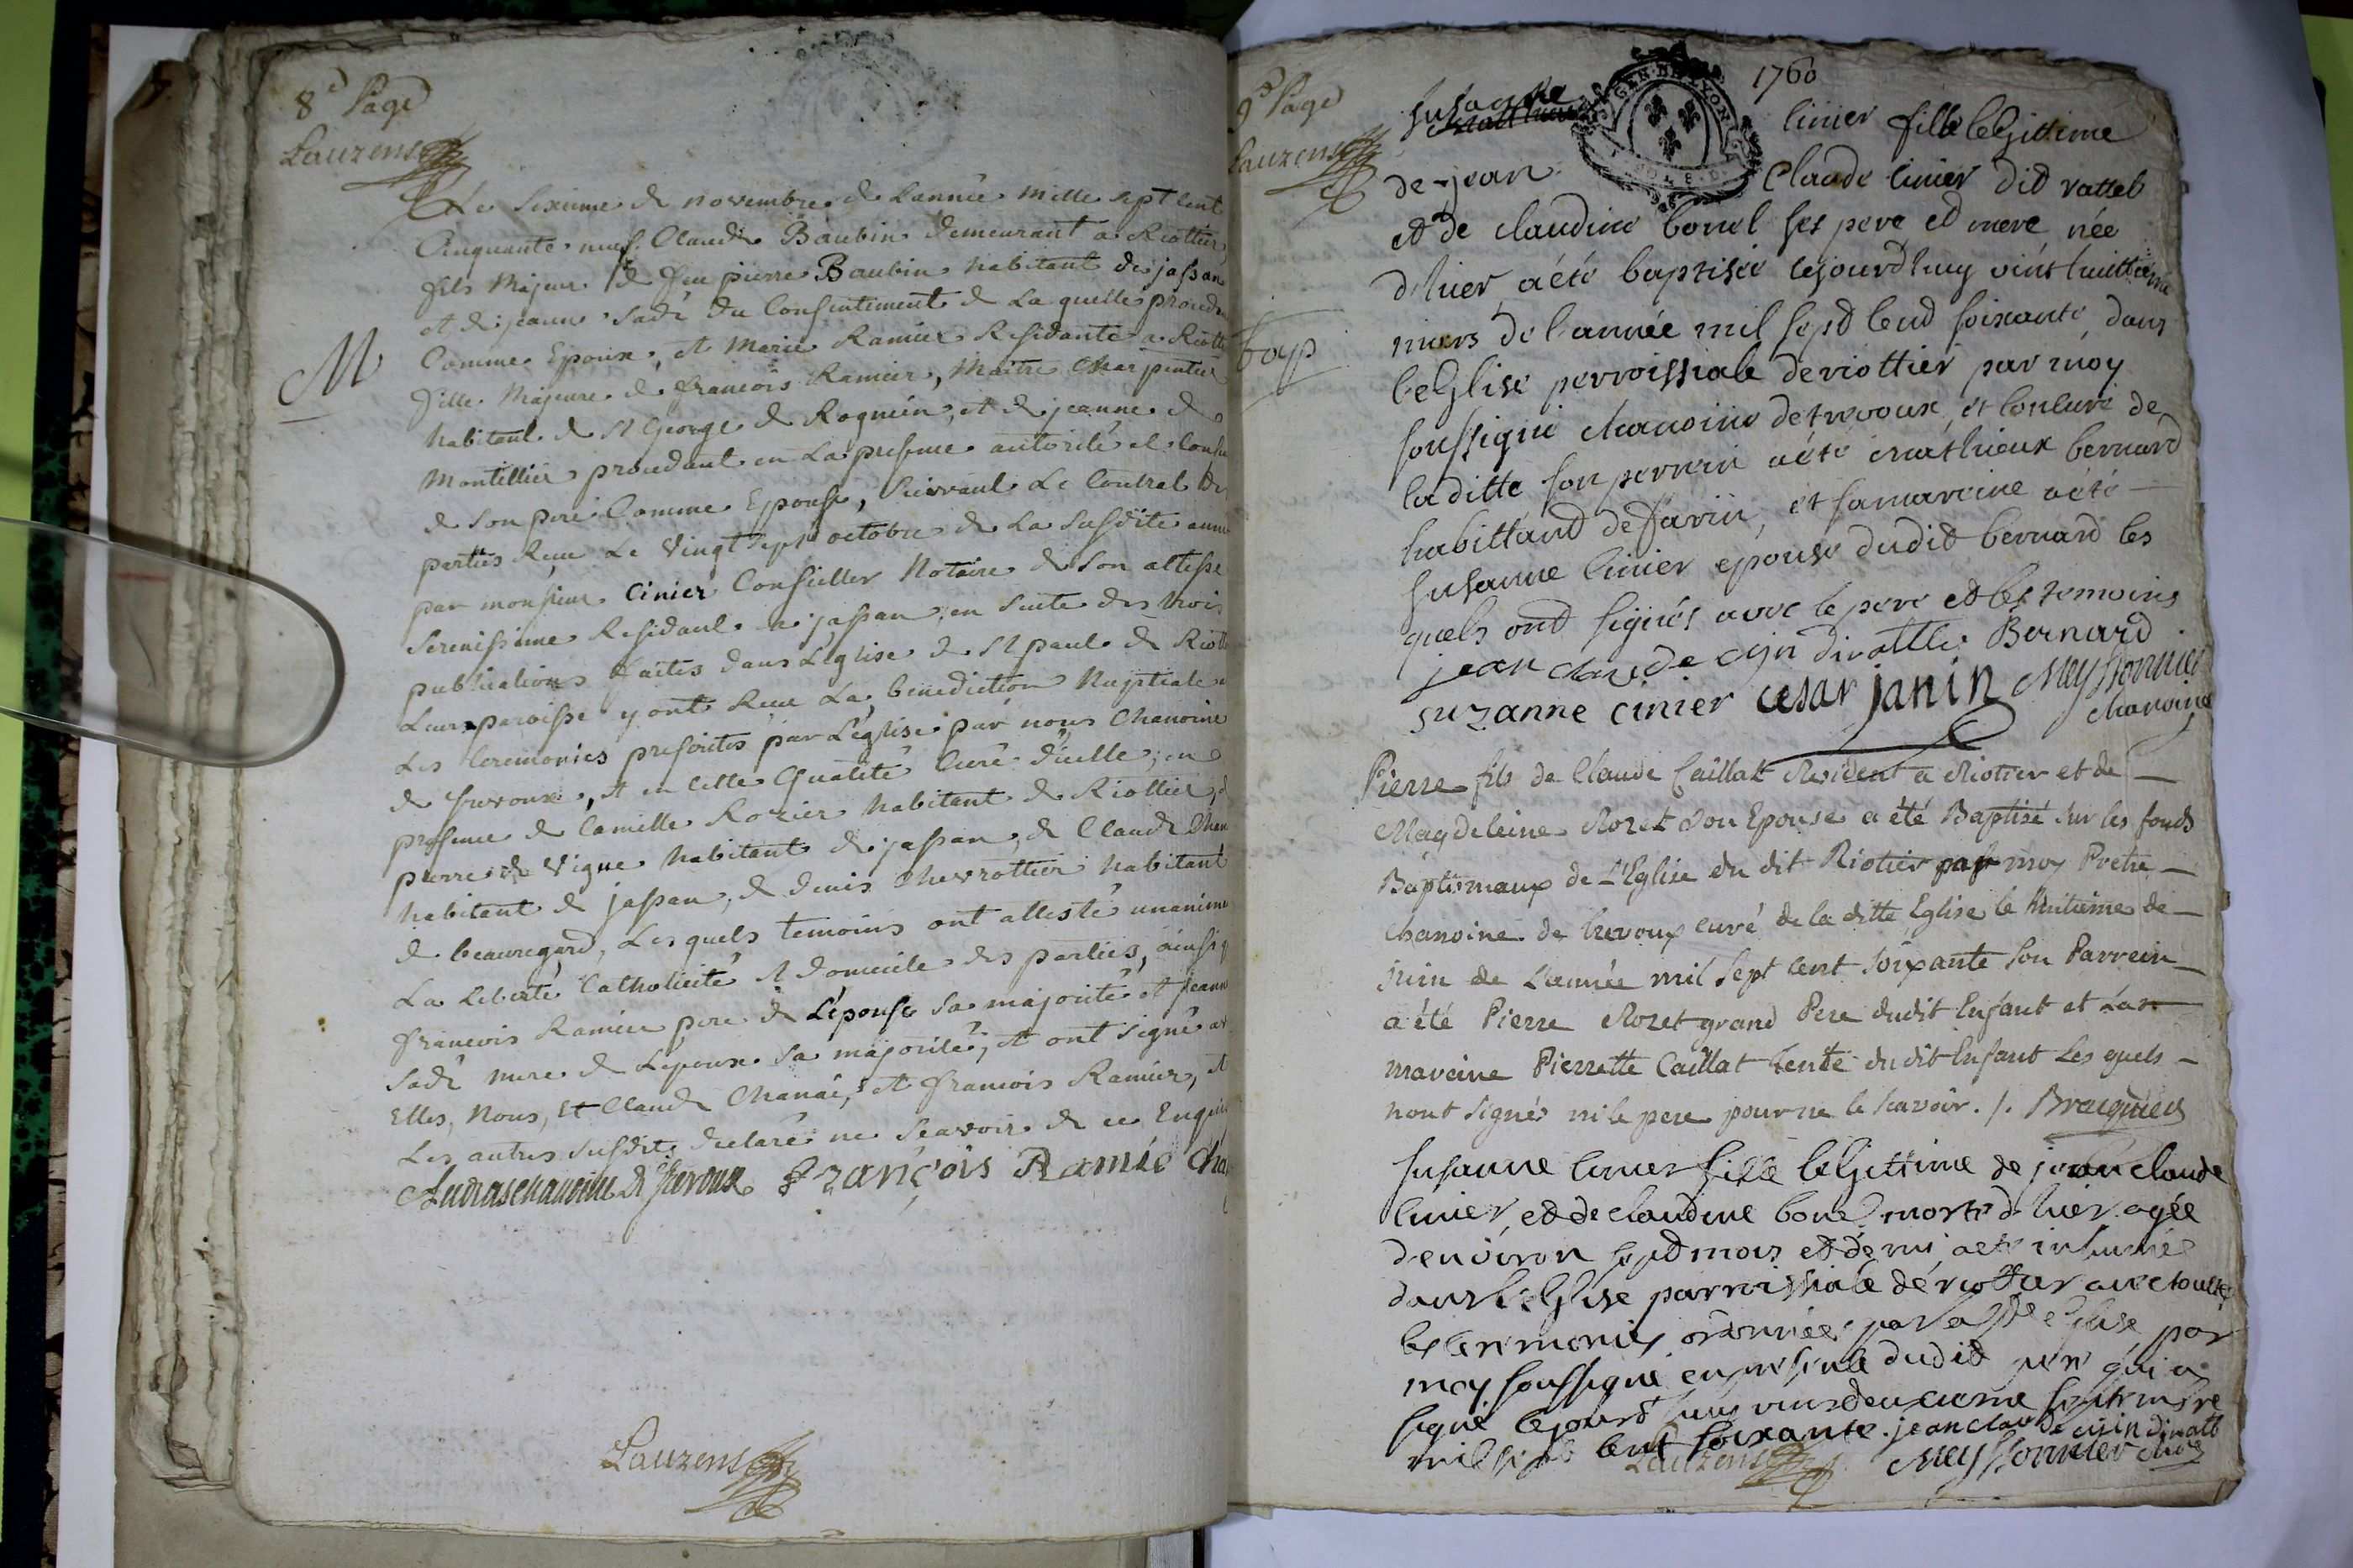 8e Page
Lauzens
Le Sixieme de novembre de L'année mille sept Cent
Cinquante neuf. Claude Baubin demeurant a Riottier
fils Majeur de feu pierre Baubin habitant de jassan
et de jeanne Sadé du Consentement de La quelle
M
Comme Epoux, et Marie Ramier Residante a
fille Majeure de francois Ramier, Maitre Charpentier
habitant de St George de Rognein, et de jeanne de
Montillier procedant en La presence autorité et
de Son pere Comme Epouse, Suivant Le Contrat
parties Recu Le Vingt sept octobre de La Susdite
par monsieur Cinier Conseiller Notaire de Son altesse
Serenissime Residant a jassan, en Suite des trois
publications faites dans L'eglise de St paul de
Leur paroisse y ont Recu La benediction Nuptiale
Les Ceremonies prescrites par L'eglise par nous Chanoine
de Trevoux, et en Cette Qualité Curé d'icelle; en
presence de Camille Rozier habitant de Riottier,
pierre de Vigne habitant de jassan, de Claude
habitant de jassan, de denis Chevrottier habitant
de beauregard, Les quels temoins ont attesté
La Liberté Catholicité et domicile des parties,
francois Ramier pere de L'epouse Sa majorité et
Sadé mere de L'epoux Sa majorité; et ont Signé
Elles, Nous, Et Claude Chanai, et francois Ramier,
Les autres Susdits declaré ne Scavoir de ce
Andras chanoine de Trevoux François Ramié
Lauzens
1760
9e Page
Lauzens
susanne
GEN. DE LYON
Cinier fille leGittime
de jean Claude Cinier dit rattet
et de claudine bonel ses pere et mere née
d'hier, a été baptisée cejourd'huy vint huittieme
mars de l'année mil sept Cent soixante, dans
bap
l'eGlise perroissiale de riottier par moy
soussigné chanoine de trevoux, et Concuré de
laditte son perrein a été mathieux bernard
habittant de farin, et sa mareine a été
susanne Cinier epouse dudit bernard les
quels ont signés avec le pere et les temoins
jean claude Bernard
suzanne cinier cesar janin Meyssonnier
chanoine
Pierre fils de Claude Caillat Resident a Riotier et de
Magdeleine Rozet son Epouse a été Baptisé sur les fonds
Baptismaux de L'Eglise du dit Riotier par moy Pretre
chanoine de trevoux curé de la ditte Eglise le Huitieme de
juin de L'année mil sept cent soixante son Parrein
a été Pierre Rozet grand Pere dudit Enfant et la
mareine Pierrette Caillat tente du dit Enfant Les quels
nont signés ni le pere pour ne le scavoir. /.
susanne Cinier fille leGittime de jean claude
Cinier, et de claudine bonel morte d'hier agée
d'environ sept mois et demi, a eté inhumée
dans l'eGlise parroissiale de riottier avec toutes
les ceremonies ordonnées par eglise, par
moy soussigné en presence dudit pere qui a
signé vint deuxieme septembre
mil sept cent soixante. jean claude
Lauzens Meyssonnier